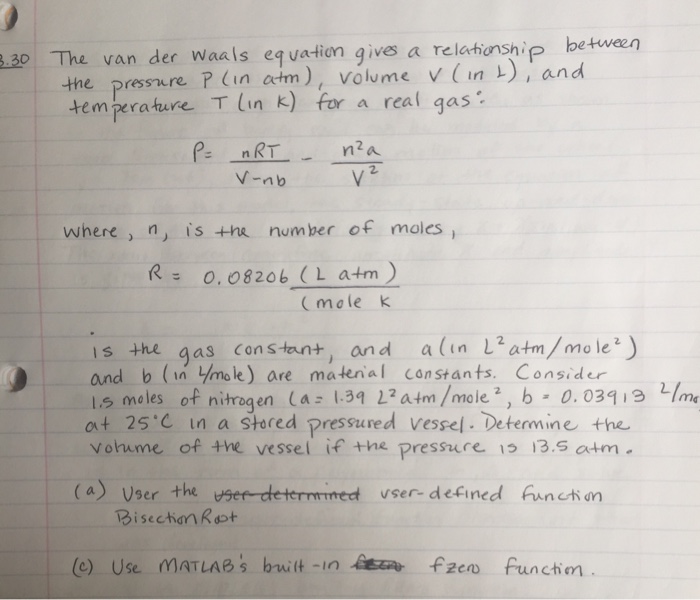 3.30 The van der Waals equation gives a relationship between
the pressure P (in atm), volume V (in L), and
temperature T (in K) for a real gas:
P = nRT / V-nb - n²a / V²
where, n, is the number of moles,
R = 0.08206 (L atm) / (mole K
is the gas constant, and a (in L² atm/mole²)
and b (in L/mole) are material constants. Consider
1.5 moles of nitrogen (a = 1.39 L² atm/mole², b = 0.03913 L/mo
at 25°C in a stored pressured vessel. Determine the
volume of the vessel if the pressure is 13.5 atm.
(a) User the user-determined user-defined function
BisectionRoot
(c) Use MATLAB's built-in fzero function.